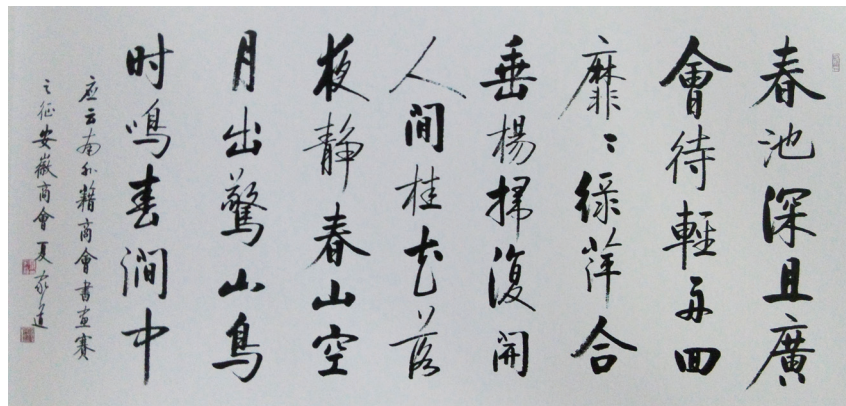 春池深且廣
會待輕舟回
靡〻綠萍合
垂楊掃復開
人間桂花落
夜静春山空
月出驚山鳥
时鳴春澗中
应云南外籍商會书画賽
之征安徽商會夏家道